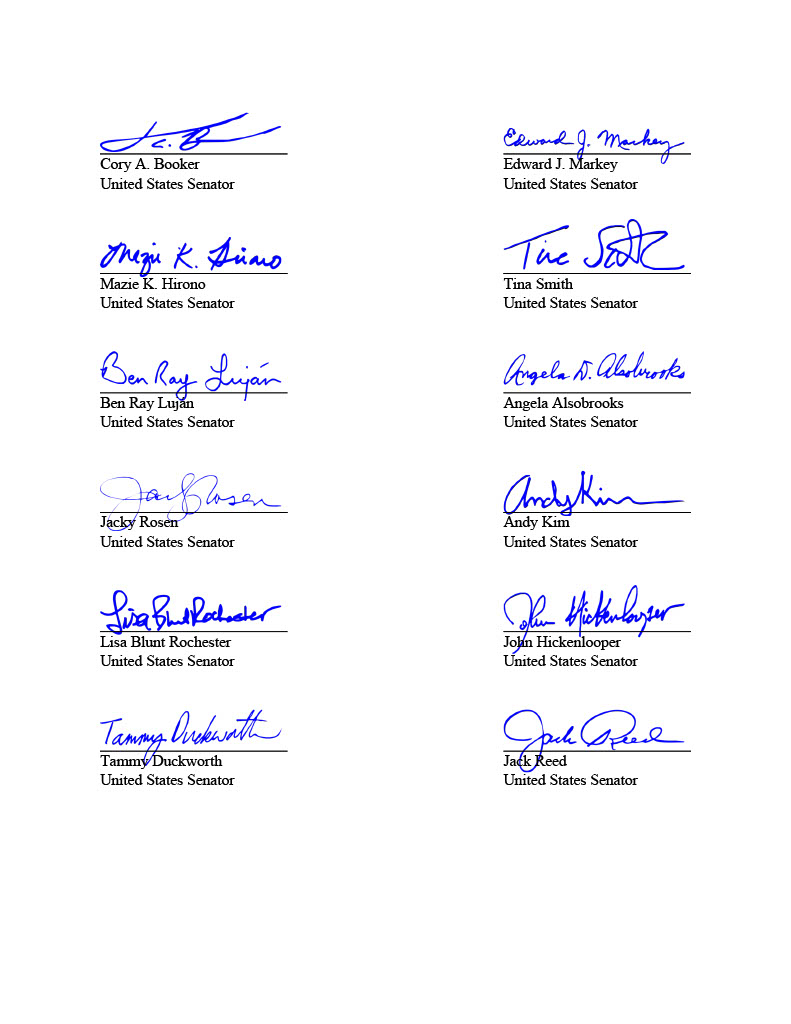 Cory A. Booker
United States Senator
Edward J. Markey
Edward J. Markey
United States Senator
Mazie K. Hirono
Mazie K. Hirono
United States Senator
Tina Smith
United States Senator
Ben Ray Luján
Ben Ray Luján
United States Senator
Angela D. Alsobrooks
Angela Alsobrooks
United States Senator
Jacky Rosen
Jacky Rosen
United States Senator
Andy Kim
Andy Kim
United States Senator
Lisa Blunt Rochester
Lisa Blunt Rochester
United States Senator
John Hickenlooper
John Hickenlooper
United States Senator
Tammy Duckworth
Tammy Duckworth
United States Senator
Jack Reed
Jack Reed
United States Senator